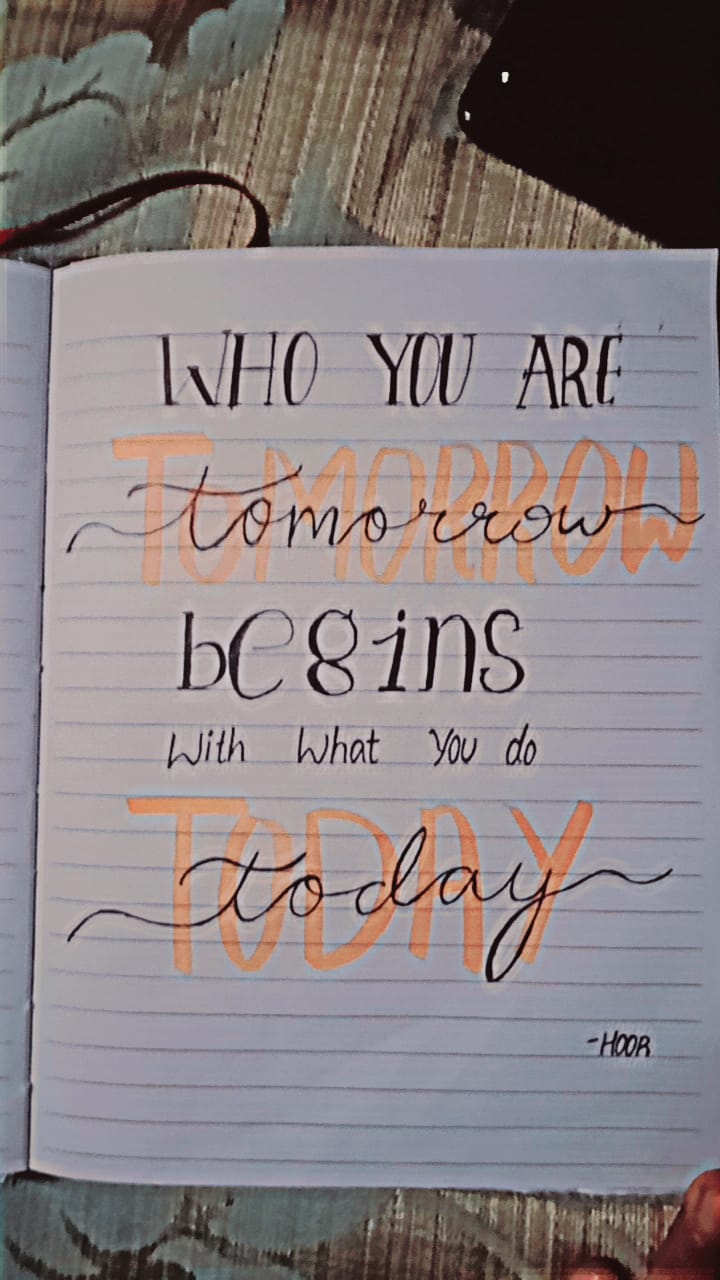 WHO YOU ARE
TOMORROW
tomorrow
begins
With What You do
TODAY
today
-HOOR